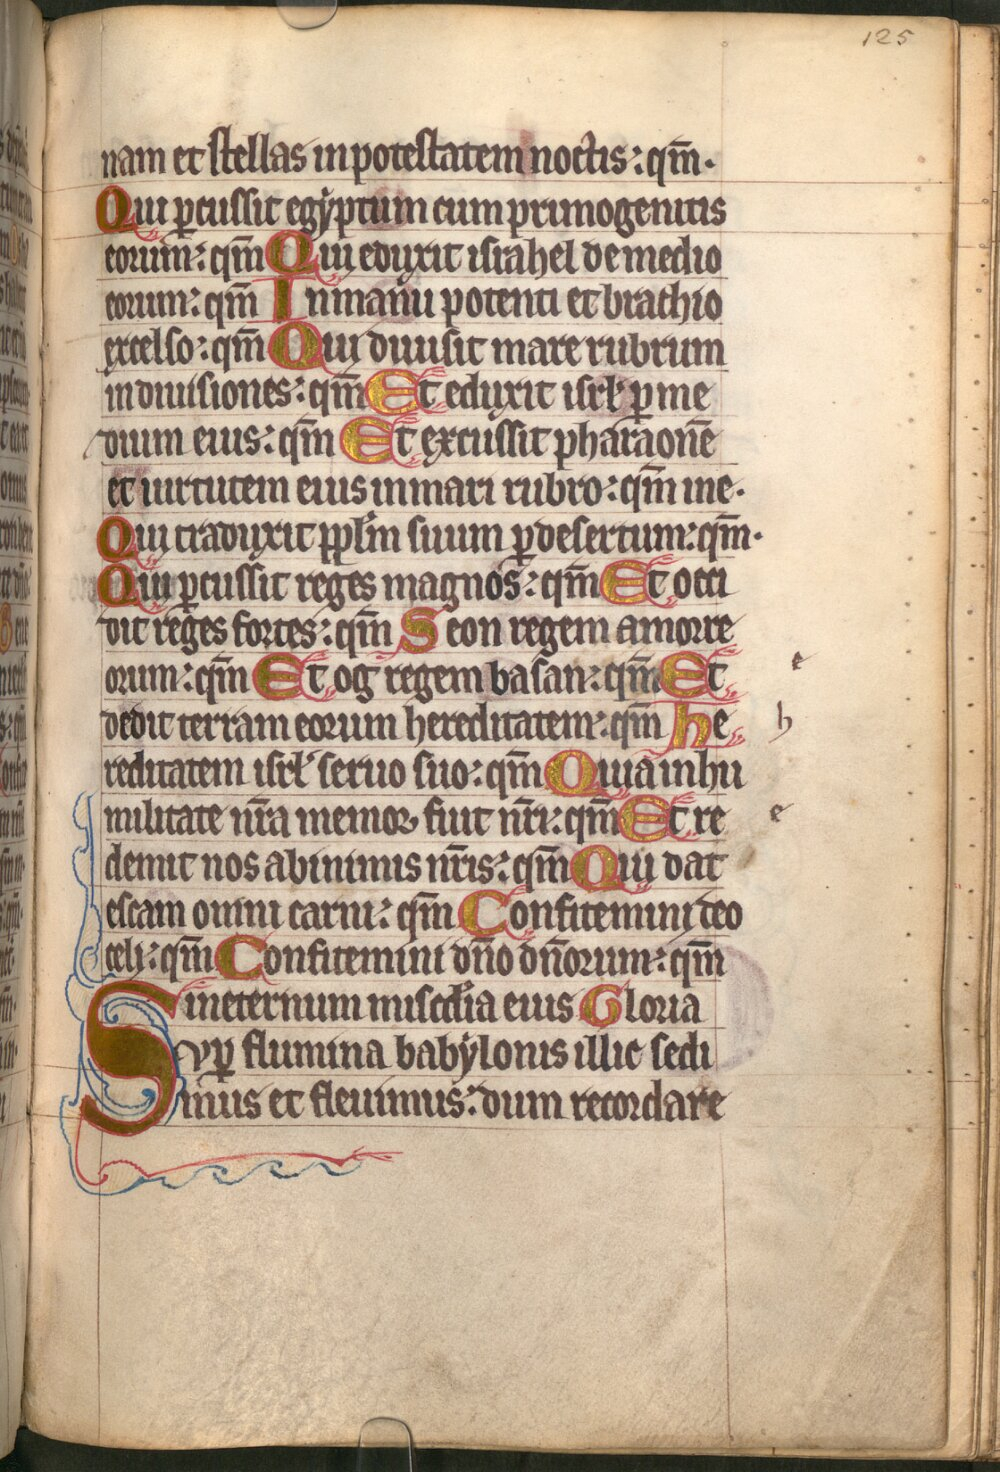 125
nam et stellas in potestatem noctis: qm̅.
Qui ꝑcussit egẏptum cum primogenitis
eorum: qm̅ Qui eduxit israhel de medio
eorum: qm̅ In manu potenti et brachio
excelso: qm̅ Qui diuisit mare rubrum
in diuisiones: qm̅ Et eduxit isrl̅ ꝑ me
dium eius: qm̅ Et excussit pharaone̅
et uirtutem eius in mari rubro: qm̅ in e.
Qui traduxit ppl̅m suum ꝑ desertum: qm̅.
Qui ꝑcussit reges magnos: qm̅ Et occi
dit reges fortes: qm̅ Seon regem amorre
orum: qm̅ Et og regem basan: qm̅ Et
e
dedit terram eorum hereditatem: qm̅ he
h
reditatem isrl̅ seruo suo: qm̅ Quia in hu
militate nr̅a memor fuit nr̅i: qm̅ Et re
e
demit nos ab inimis nr̅is: qm̅ Qui dat
escam omni carni: qm̅ Confitemini deo
celi: qm̅ Confitemini dn̅o dn̅orum: qm̅
in eternum miscd̅ia eius Gloria
Syꝑ flumina babẏlonis illic sedi
mus et fleuimus: dum recordare